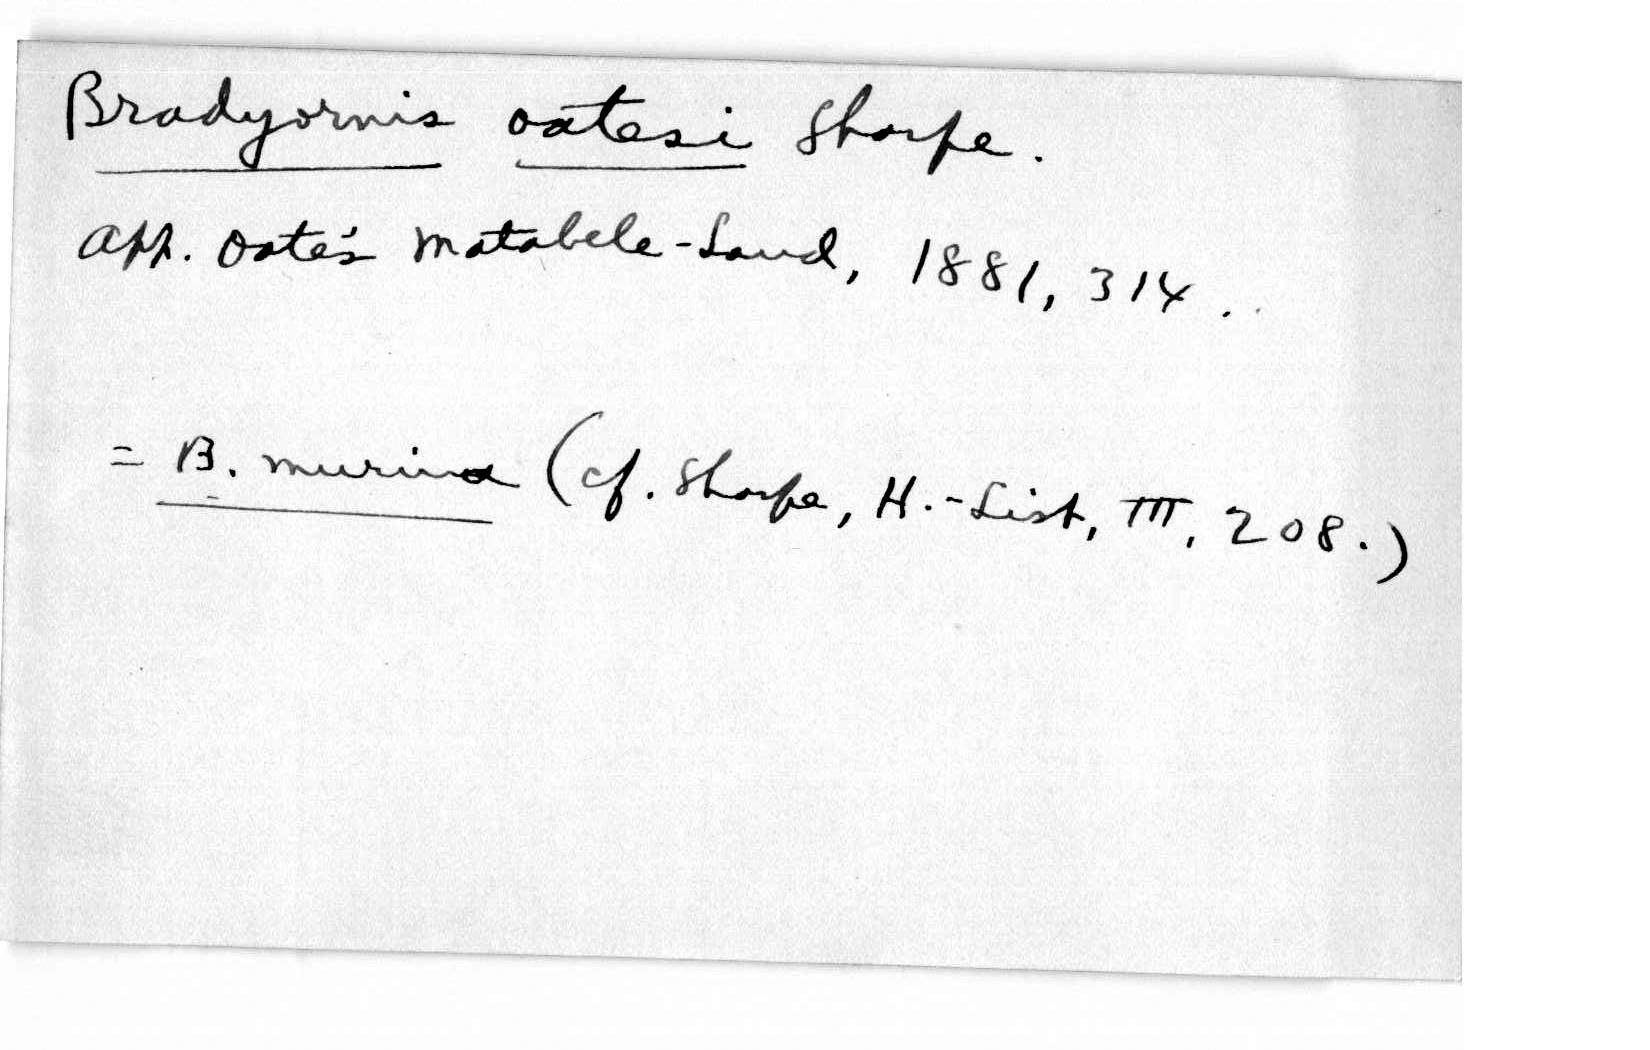 Bradyornis oatesi Sharpe.
App. Oate's Matabele-Land, 1881, 314.
= B. murina (cf. Sharpe, H.-List, III, 208.)